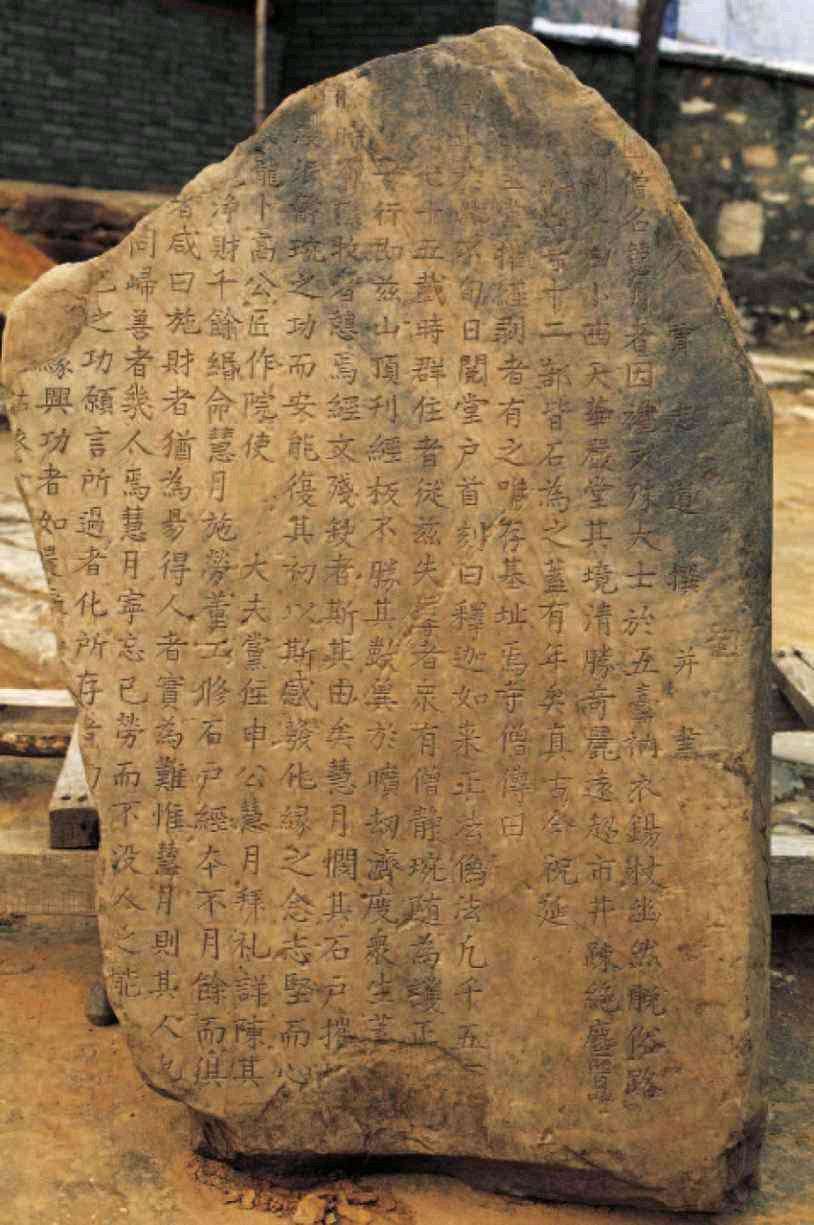 賈志道撰并書
山僧名慧月者因禮文殊大士於五臺衲衣錫杖幽然脫俗路
小西天華嚴堂其境清勝奇麗遠超市井疎絕塵囂
十二部皆石為之蓋有年矣真古今祝延
摧經剝者有之唯存基址焉寺僧傳曰
旬日開堂戶首刻曰釋迦如來正法像法凡千五
十五載時群住者從茲失導者衆有僧靜琬隨為護正
行即茲山頂刊經板不勝其數冀於曠劫濟度衆生
牧者憩焉經文殘缺者斯其由矣慧月憫其石戶摧
琬之功而安能復其初以斯感發化緣之念志堅而心
龍卜高公匠作院使 大夫黨住申公慧月拜礼詳陳其
淨財千餘緡命慧月施勞董工修石戶經本不月餘而俱
者咸曰施財者猶為易得人者實為難惟慧月則其人也
同歸善者幾人焉慧月寧忘已勞而不没人之能
已之功願言所過者化所存者
緣興功者如是